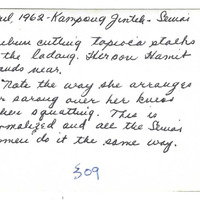 ril, 1962 - Kampong Jintek - Semai
cutting tapioca stalks
the ladang. Herson Hamit
ands near.
Note the way she arranges
r sarong over her knees
hen squatting. This is
ormalized and all the Semai
omen do it the same way.
309